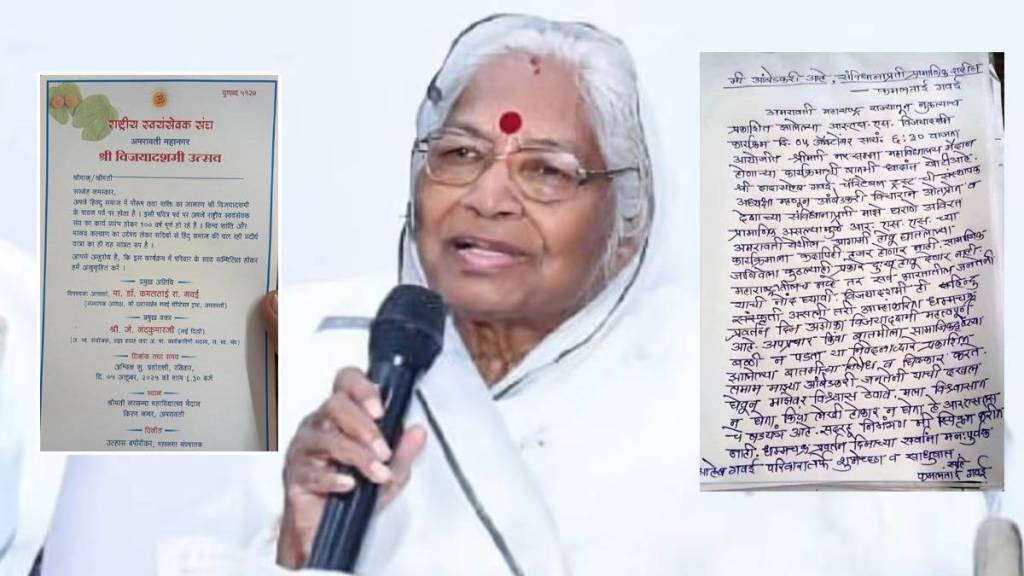 युगाब्द ५१२७
राष्ट्रीय स्वयंसेवक संघ
अमरावती महानगर
श्री विजयादशमी उत्सव
श्रीमान्/श्रीमती
सस्नेह नमस्कार,
अपने हिन्दु समाज में पौरुष तथा शक्ति का जागरण श्री विजयादशमी
के पावन पर्व पर होता है । इसी पवित्र पर्व पर अपने राष्ट्रीय स्वयंसेवक
संघ का कार्य प्रारंभ होकर १०० वर्ष पूर्ण हो रहे है । विश्व शांति और
मानव कल्याण का उद्देश्य लेकर सदियों से हिंदू समाज की चल रही प्रदीर्घ
यात्रा का ही यह सांप्रत रूप है ।
आपसे अनुरोध है, कि इस कार्यक्रम में परिवार के साथ सम्मिलित होकर
हमें अनुग्रहित करें ।
प्रमुख अतिथि
मा. डॉ. कमलताई रा. गवई
प्रमुख वक्ता
श्री. जे. नंदकुमारजी (नई दिल्ली)
दिनांक तथा समय
अश्विन शु. त्रयोदशी, रविवार,
दि. ०५ अक्तूबर, २०२५ को सायं ६.३० बजे
स्थान
श्रीमती नरसम्मा महाविद्यालय मैदान
किरण नगर, अमरावती
विनीत
उल्हास बपोरीकर, महानगर संघचालक
मी आंबेडकरी आहे, संविधानाप्रती प्रामाणिक राहील
— कमलताई गवई
अमरावती महाराष्ट्र राज्यातून नुकत्याच
प्रकाशित झालेल्या आर.एस.एस. विजयादशमी
कार्यक्रम दि. ०५ ऑक्टोबर सायं: ६:३० वाजता
आयोजीत श्रीमती नरसम्मा महाविद्यालय मैदान
होणाऱ्या कार्यक्रमाची बातमी धादांत खोटी आहे.
श्री दादासाहेब गवई चॅरिटेबल ट्रस्ट ची संस्थापक
अध्यक्षा म्हणून आंबेडकरी विचाराने ओतप्रोत व
देशाच्या संविधानाप्रती माझे घराणे अविरत
प्रामाणिक असल्यामुळे आर. एस. एस. च्या
अमरावती येथील आगामी होवू घातलेल्या
कार्यक्रमाला कदापिही हजर होणार नाही. सामाजिक
महाराष्ट्रातीलच नव्हे तर सर्व भारतातील जनतेनी
याची नोंद घ्यावी. विजयादशमी ही
संस्कृती असली तरी आमच्याकरिता धम्मचक्र
प्रवर्तन दिन अशोका विजयादशमी महत्वपूर्ण
आहे. अपप्रचार किंवा बातमीला सामाजिक
बळी न पडता या निवेदनाद्वारे प्रकाशित
झालेल्या बातमीचा निषेध व धिक्कार करते.
तमाम माझ्या आंबेडकरी जनतेनी याची दखल
घेवून माझेवर विश्वास ठेवावे. मला विश्वासात
न घेता, किंवा लेखी होकार न घेता हे आरएसएस
चे षडयंत्र आहे. सदरहू निमंत्रण मी स्विकृत करीत
नाही. धम्मचक्र प्रवर्तन दिनाच्या सर्वांना मन:पूर्वक
गवई परिवारातर्फे शुभेच्छा व साधुवाद
कमलताई गवई